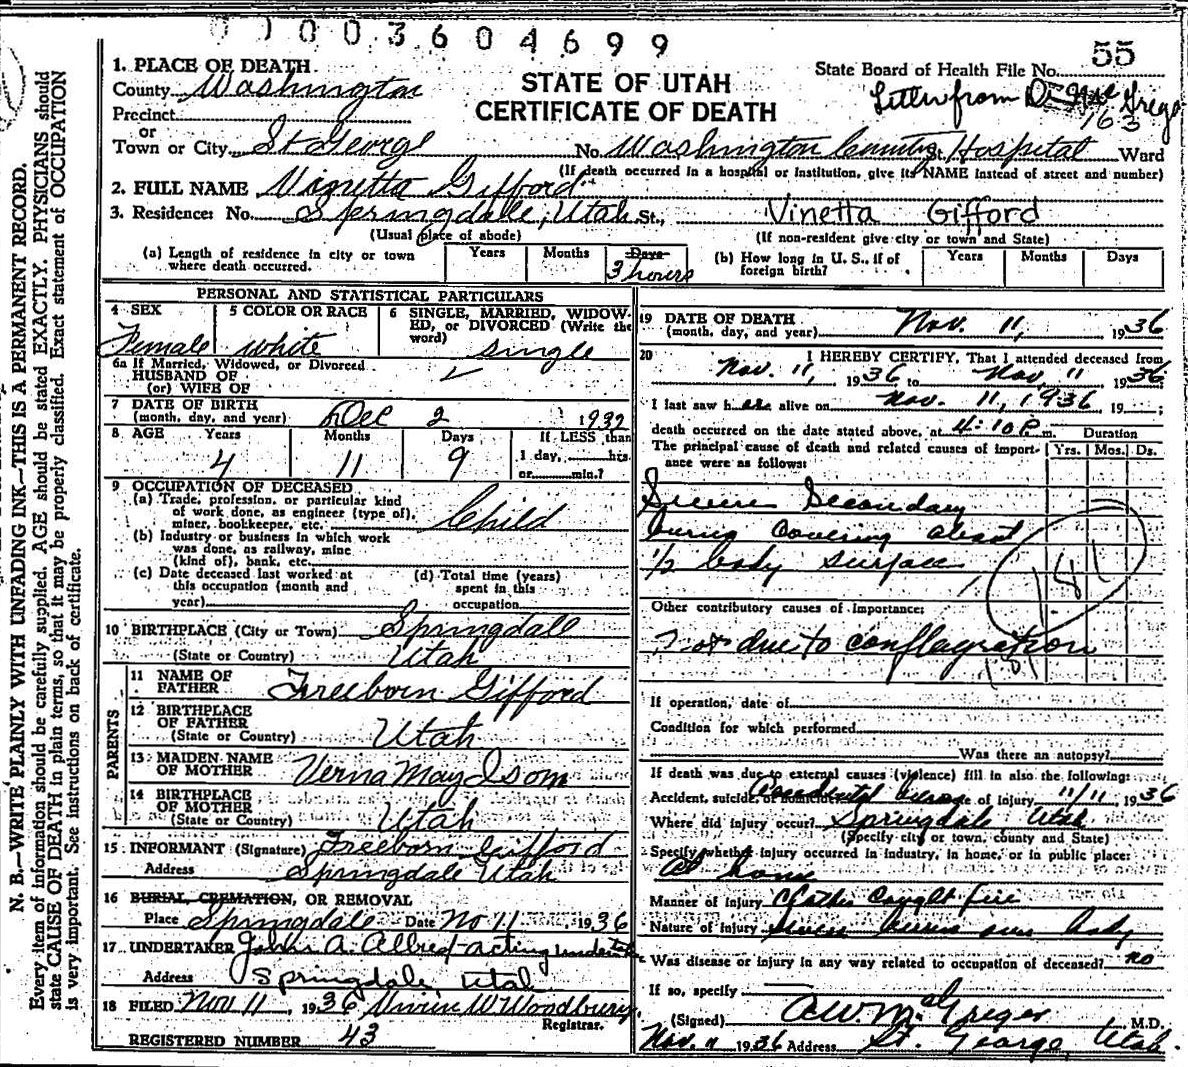 01003604699
55
1. PLACE OF DEATH
STATE OF UTAH
CERTIFICATE OF DEATH
State Board of Health File No.
Letter from Dr
163
County Washington
Precinct
or
Town or City St George No. Washington County St. Hospital Ward
(If death occurred in a hospital or institution, give its NAME instead of street and number)
2. FULL NAME Vinetta Gifford
3. Residence: No. Springdale, Utah St., Vinetta Gifford
(Usual place of abode) (If non-resident give city or town and State)
(a) Length of residence in city or town where death occurred. Years Months Days 3 hours
(b) How long in U. S., if of foreign birth? Years Months Days
PERSONAL AND STATISTICAL PARTICULARS
4 SEX Female
5 COLOR OR RACE white
6 SINGLE, MARRIED, WIDOWED, or DIVORCED (Write the word) single
6a If Married, Widowed, or Divorced
HUSBAND OF
(or) WIFE OF
7 DATE OF BIRTH
(month, day, and year) Dec 2 1932
8 AGE Years 4 Months 11 Days 9 If LESS than 1 day, hrs. or min.?
9 OCCUPATION OF DECEASED
(a) Trade, profession, or particular kind
of work done, as engineer (type of),
miner, bookkeeper, etc. Child
(b) Industry or business in which work
was done, as railway, mine
(kind of), bank, etc.
(c) Date deceased last worked at
this occupation (month and
year)
(d) Total time (years)
spent in this
occupation
10 BIRTHPLACE (City or Town) Springdale
(State or Country) Utah
PARENTS
11 NAME OF
FATHER Freeborn Gifford
12 BIRTHPLACE
OF FATHER
(State or Country) Utah
13 MAIDEN NAME
OF MOTHER Verna May Isom
14 BIRTHPLACE
OF MOTHER
(State or Country) Utah
15 INFORMANT (Signature) Freeborn Gifford
Address Springdale Utah
16 BURIAL, CREMATION, OR REMOVAL
Place Springdale Date No 11 1936
17 UNDERTAKER A. Allred acting undertaker
Address Springdale, Utah
18 FILED Nov 11, 1936 W Woodbury
Registrar.
REGISTERED NUMBER 43
19 DATE OF DEATH
(month, day, and year) Nov. 11, 1936
20 I HEREBY CERTIFY, That I attended deceased from
Nov. 11, 1936 to Nov. 11 1936
I last saw her alive on Nov. 11, 1936 19 ;
death occurred on the date stated above, at 4:10 P. m. Duration
The principal cause of death and related causes of importance were as follows: Yrs. Mos. Ds.
Severe Secondary
burns covering about
1/2 body surface
181
Other contributory causes of importance:
not due to conflagration
181
If operation, date of
Condition for which performed
Was there an autopsy?
If death was due to external causes (violence) fill in also the following:
Accident, suicide, or homicide Accidental Date of injury 11/11, 1936
Where did injury occur? Springdale Utah
(Specify city or town, county and State)
Specify whether injury occurred in industry, in home, or in public place:
At home
Manner of injury Clothes Caught fire
Nature of injury severe burns over body
Was disease or injury in any way related to occupation of deceased? no
If so, specify
(Signed) A.W. McGregor M.D.
Nov. 11 1936 Address St. George, Utah.
N. B.—WRITE PLAINLY WITH UNFADING INK—THIS IS A PERMANENT RECORD.
Every item of information should be carefully supplied. AGE should be stated EXACTLY. PHYSICIANS should
state CAUSE OF DEATH in plain terms, so that it may be properly classified. Exact statement of OCCUPATION
is very important. See instructions on back of certificate.